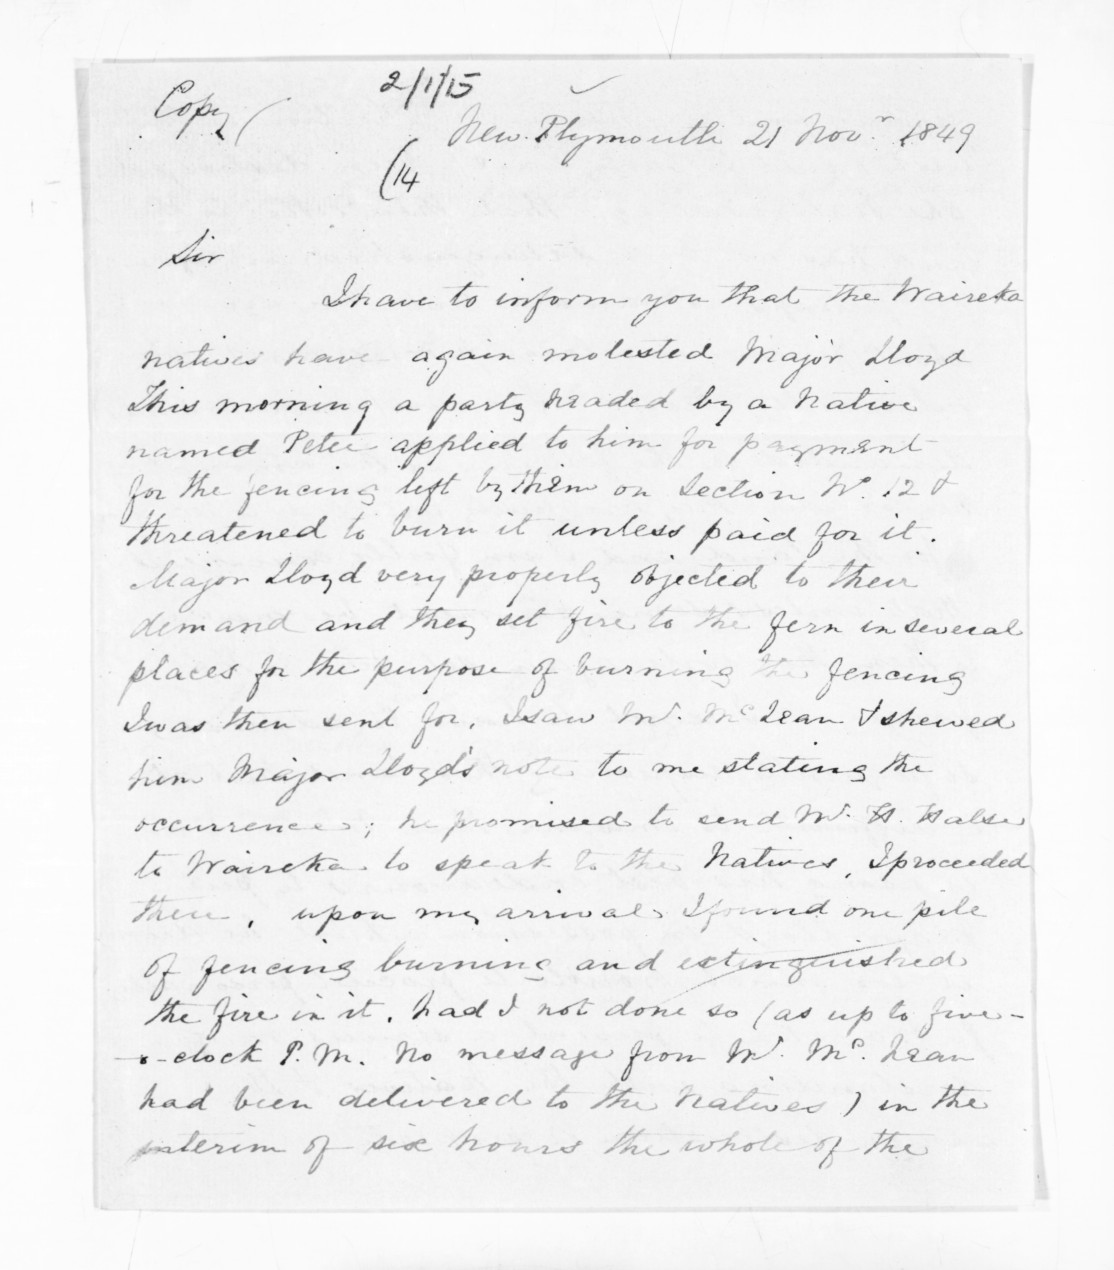 Copy
2/1/15
New Plymouth 21 Novr. 1849
(14
Sir
I have to inform you that the Waireka
natives have again molested Major Lloyd
This morning a party headed by a Native
named Peter applied to him for payment
for the fencing left by them on Section No. 12 &
threatened to burn it unless paid for it.
Major Lloyd very properly objected to their
demand and they set fire to the fern in several
places for the purpose of burning the fencing
I was then sent for. I saw Mr. McLean & shewed
him Major Lloyd's note to me stating the
occurrence; he promised to send Mr. H. Halse
to Waireka to speak to the Natives, I proceeded
there, upon my arrival I found one pile
of fencing burning and extinguished
the fire in it. had I not done so (as up to five-
o-clock P.M. no message from Mr. Mc.Lean
had been delivered to the Natives) in the
interim of six hours the whole of the